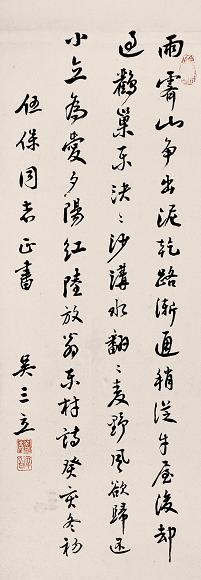 雨霁山争出泥乾路渐通稍从牛屋后却
过鹳巢东决决沙沟水翻翻麦野风欲归还
小立为爱夕阳红陆放翁东村诗癸亥冬初
伍保同志正书
吴三立